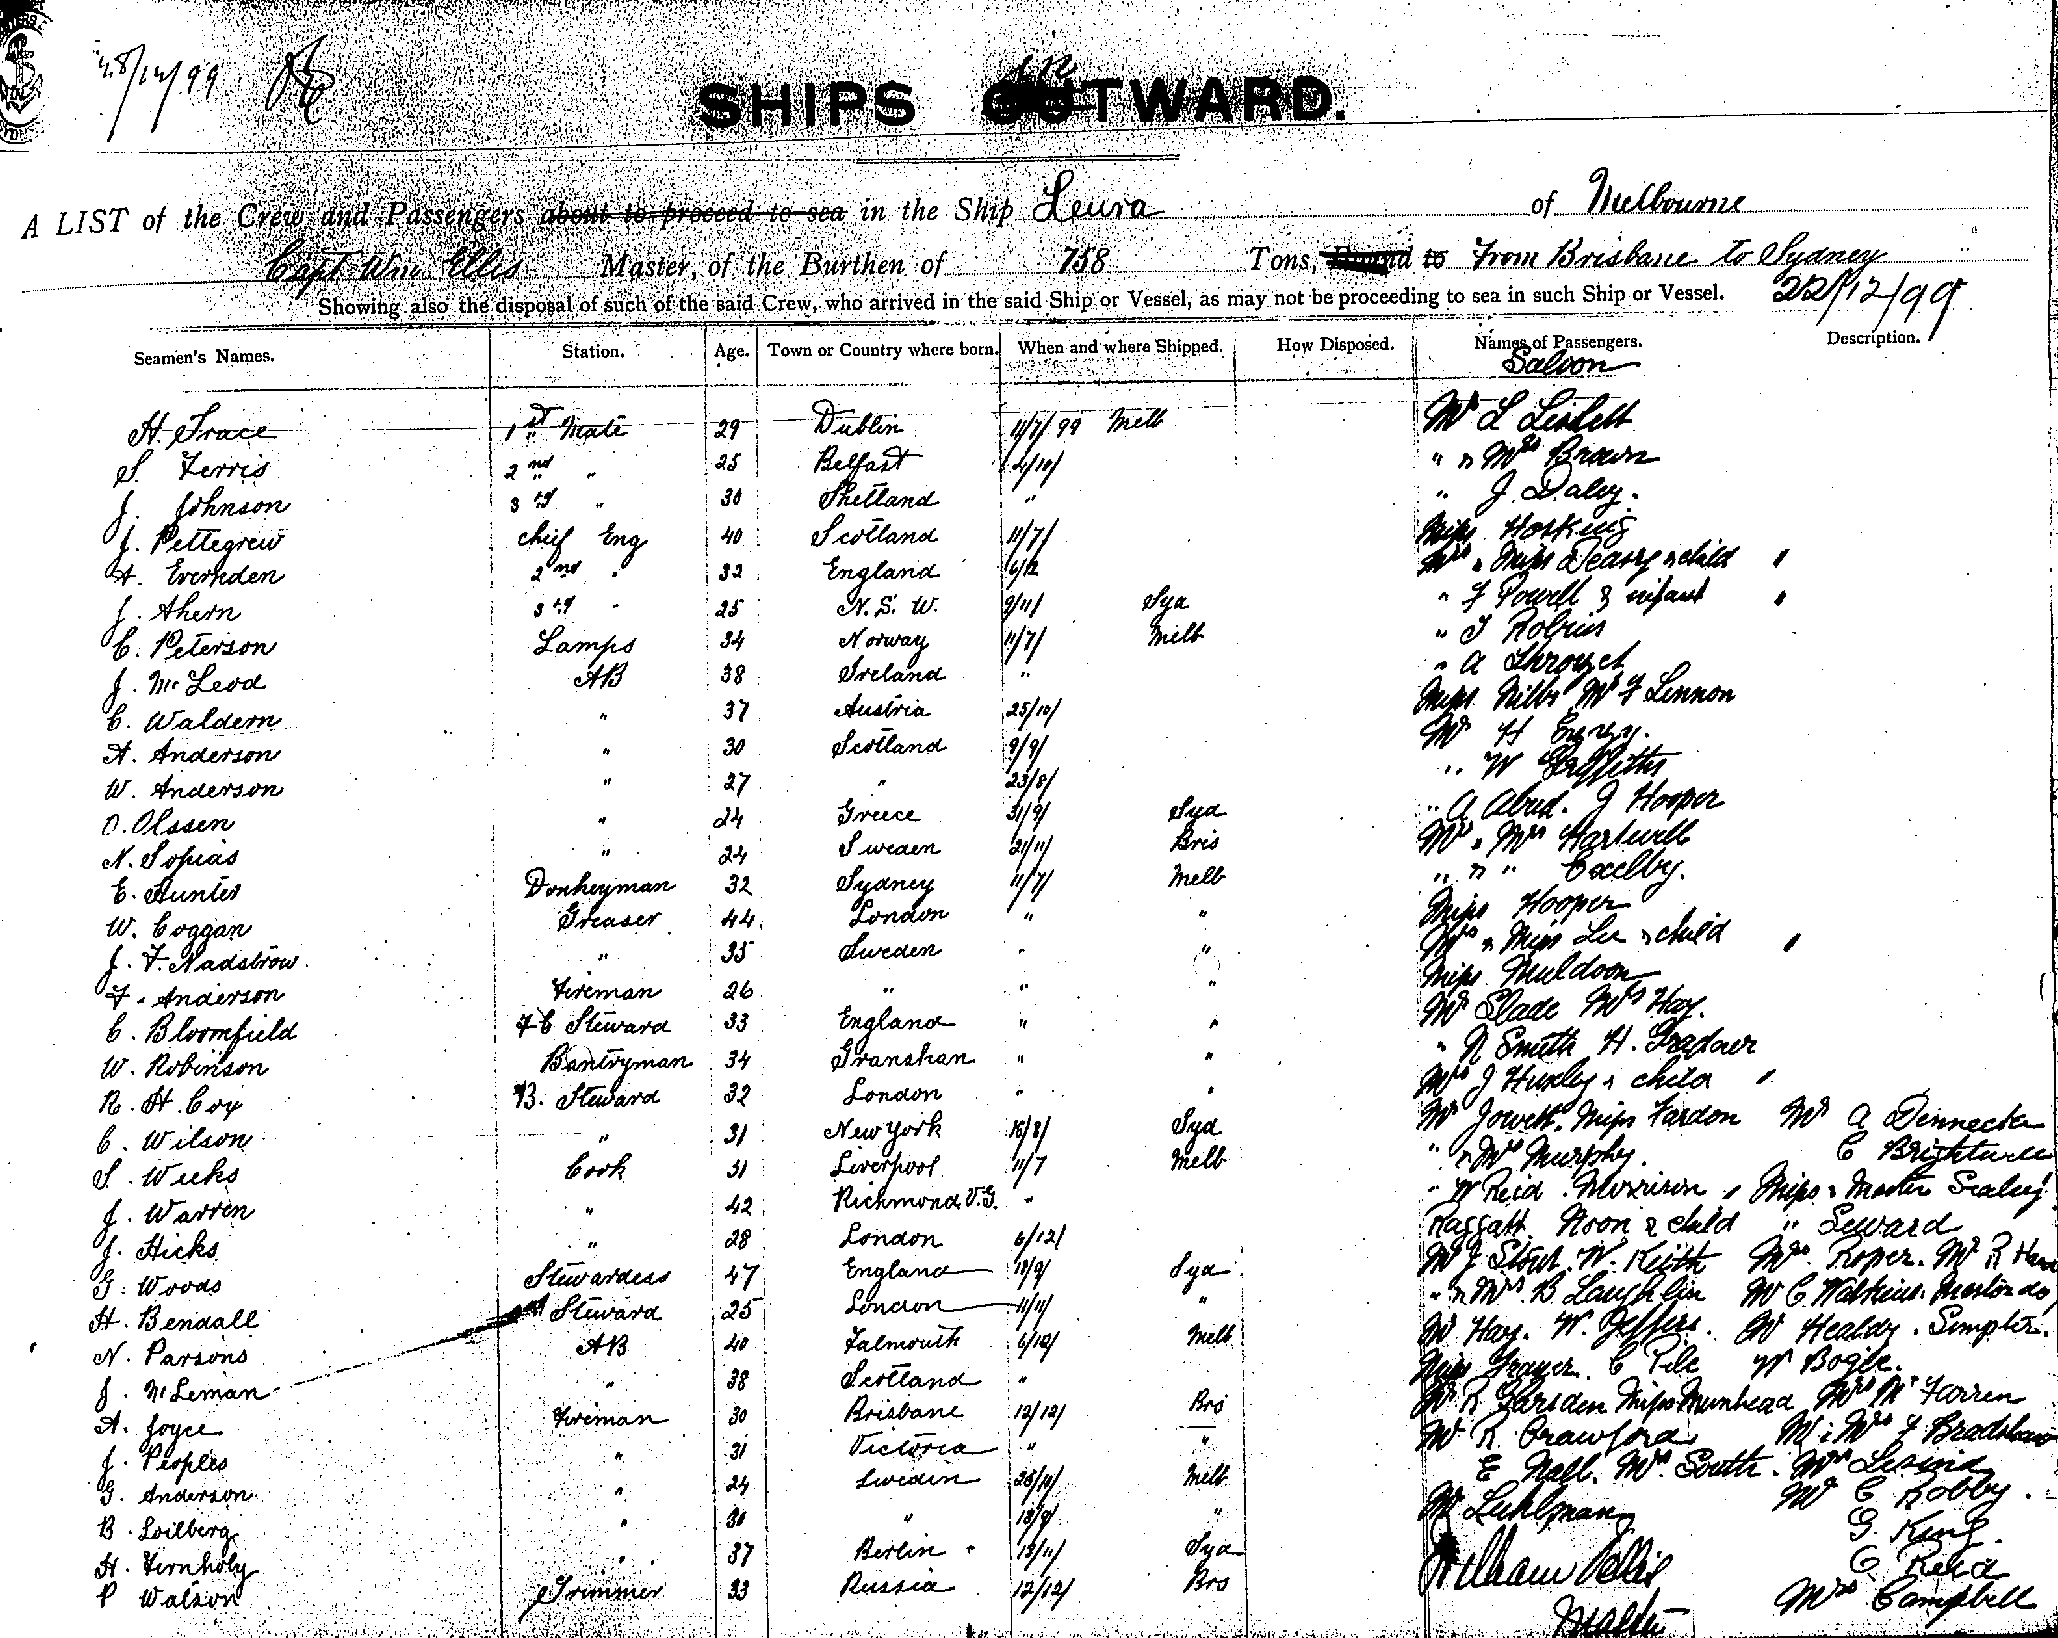 28/12/99
SHIPS INTWARD.
A LIST of the Crew and Passengers about to proceed to sea in the Ship Leura of Melbourne
Capt Wm Ellis Master, of the Burthen of 758 Tons, Bound to From Brisbane to Sydney
Showing also the disposal of such of the said Crew, who arrived in the said Ship or Vessel, as may not be proceeding to sea in such Ship or Vessel. 22/12/99
Seamen's Names. Station. Age. Town or Country where born. When and where Shipped. How Disposed. Names of Passengers. Description.
Saloon
H. Trace 1st Mate 29 Dublin 11/7/99 Melb Mr L
S. Ferris 2nd " 25 Belfast 4/10/ " & Mrs Brown
J. Johnson 3rd " 30 Shetland " " J. Daley.
J. Pettegrew chief Eng 40 Scotland 11/7/ Miss Hosking
A. Evernden 2nd " 32 England 6/12 Mrs & Miss Deasy & child "
J. Ahern 3rd " 25 N. S. W. 9/11/ Syd " F Powell & infant "
C. Peterson Lamps 34 Norway 11/7/ Melb " T Robins
J. McLeod AB 38 Ireland " " A
C. Waldern " 37 Austria 25/10/ Miss Nilbs Mr F Lennon
A. Anderson " 30 Scotland 9/9/ Mr H
W. Anderson " 27 " 23/8/ " W Griffiths
O. Olssen " 24 Greece 31/9/ Syd " A Abud. J Hooper
N. Sopias " 24 Sweden 21/11/ Bris Mr & Mrs Hartwell
E. Hunter Donkeyman 32 Sydney 11/7/ Melb " & " Exelby.
W. Coggan Greaser 44 London " " Miss Hooper
J. F. Nadstrow " 35 Sweden " " Mrs & Miss Lee & child "
F. Anderson Fireman 26 " " " Miss Muldoon
C. Bloomfield F C Steward 33 England " " Mr Slade Mrs Hay.
W. Robinson Pantryman 34 " " " N Smith H.
R. H. Cox B. Steward 32 London " " Mrs J Huxley & child "
C. Wilson " 31 New York 16/8/ Syd Mr Jowett. Miss Fardon Mr A
S. Weeks Cook 31 Liverpool 11/7 Melb " & Mrs Murphy. C
J. Warren " 42 Richmond V.G. " " W Reid . Morrison & Miss & Master Sealey
J. Hicks " 28 London 6/12/ Raggatt. Noon & child " Seward
G. Woods Stewardess 47 England 18/9/ Syd Mr J Stout. W. Keith Mrs. Roper. Mr R
H. Bendall Steward 25 London 11/11/ " " & Mrs. B Laughlin Mr C Watkins.
N. Parsons AB 40 Falmouth 6/12/ Melb Mr Hay. W. Jeffers. Mr Healdy .
J. McLeman " 38 Scotland " Miss C Pile W Bogle.
A. Joyce Fireman 30 Brisbane 12/12/ Bris Mr R Garsden Miss Muirhead Mrs McFarren
J. Peoples " 31 Victoria " " Mr R. Crawford Mr & Mrs F Bradshaw
G. Anderson " 24 Sweden 25/11/ Melb E Nall. Mrs. South. Mrs Lesina
B. Loilberg " 30 " 18/9/ " Mr Luhlman Mr E Robby.
H. Fernholy " 37 Berlin 13/11/ Syd G. King.
P Watson Trimmer 33 Russia 12/12/ Bris William Ellis C. Reid
Master Mrs Campbell